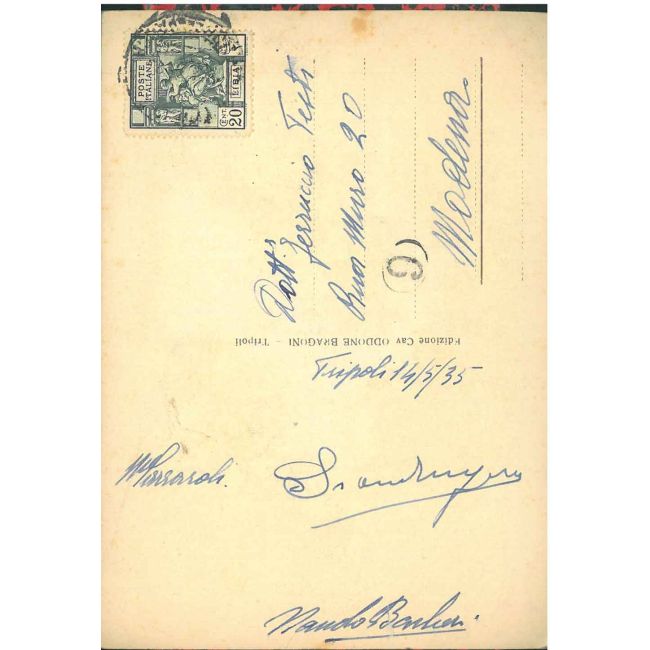 POSTE
ITALIANE
LIBIA
CENT. 20
Dott. Ferruccio Testi
Rua Muro 20
Modena
G
Edizione Cav ODDONE BRAGONI - Tripoli
Tripoli 14/5/35
Nando Barbieri